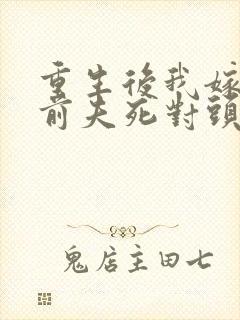 重生後我嫁
前夫死對頭
鬼店主田七